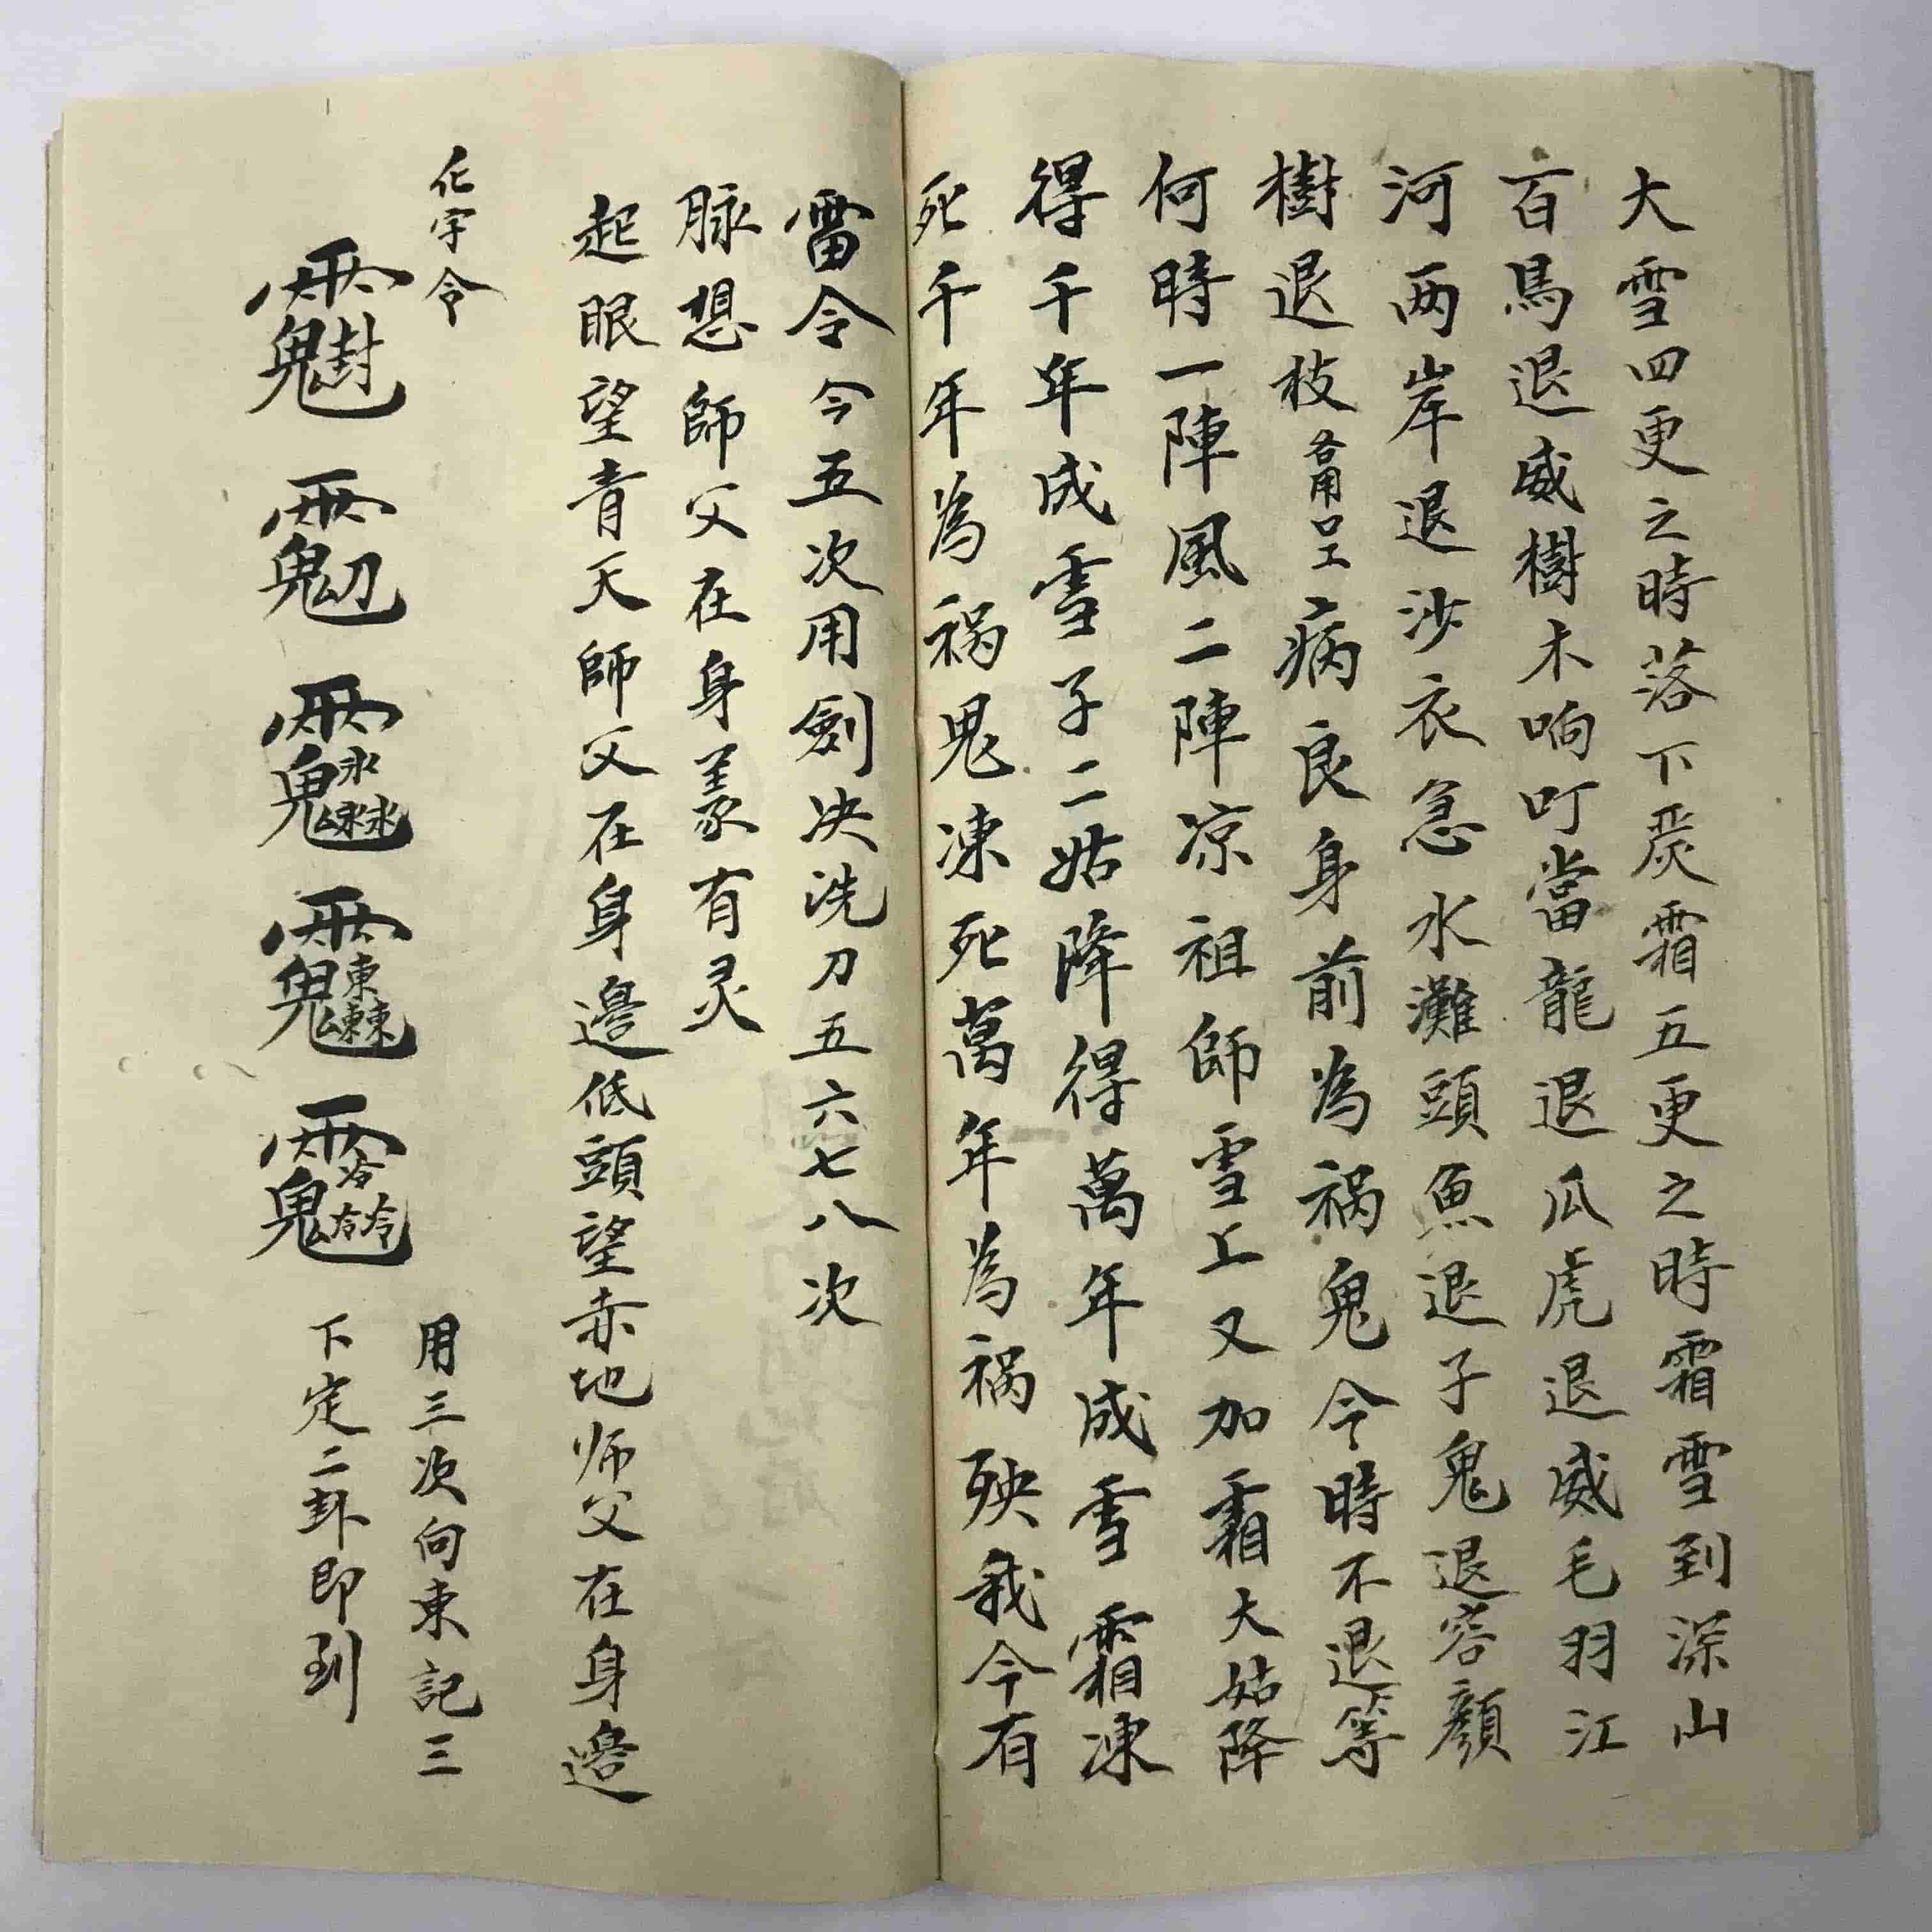 大雪四更之時落下炭霜五更之時霜雪到深山
百馬退威樹木响叮當龍退瓜虎退威毛羽江
河两岸退沙衣急水灘頭魚退子鬼退容顔
樹退枝
病良身前為禍鬼令時不退等
何時一陣風二陣凉祖師雪上又加霜大姑降
得千年成雪子二姑降得萬年成雪霜凍
死千年為禍鬼凍死萬年為禍殃我今有
雷令令五次用劍决洗刀五六七八次
脉想師父在身
有灵
起眼望青天師父在身邊低頭望赤地师父在身邊
化字令
用三次向東記三
下定二卦即到